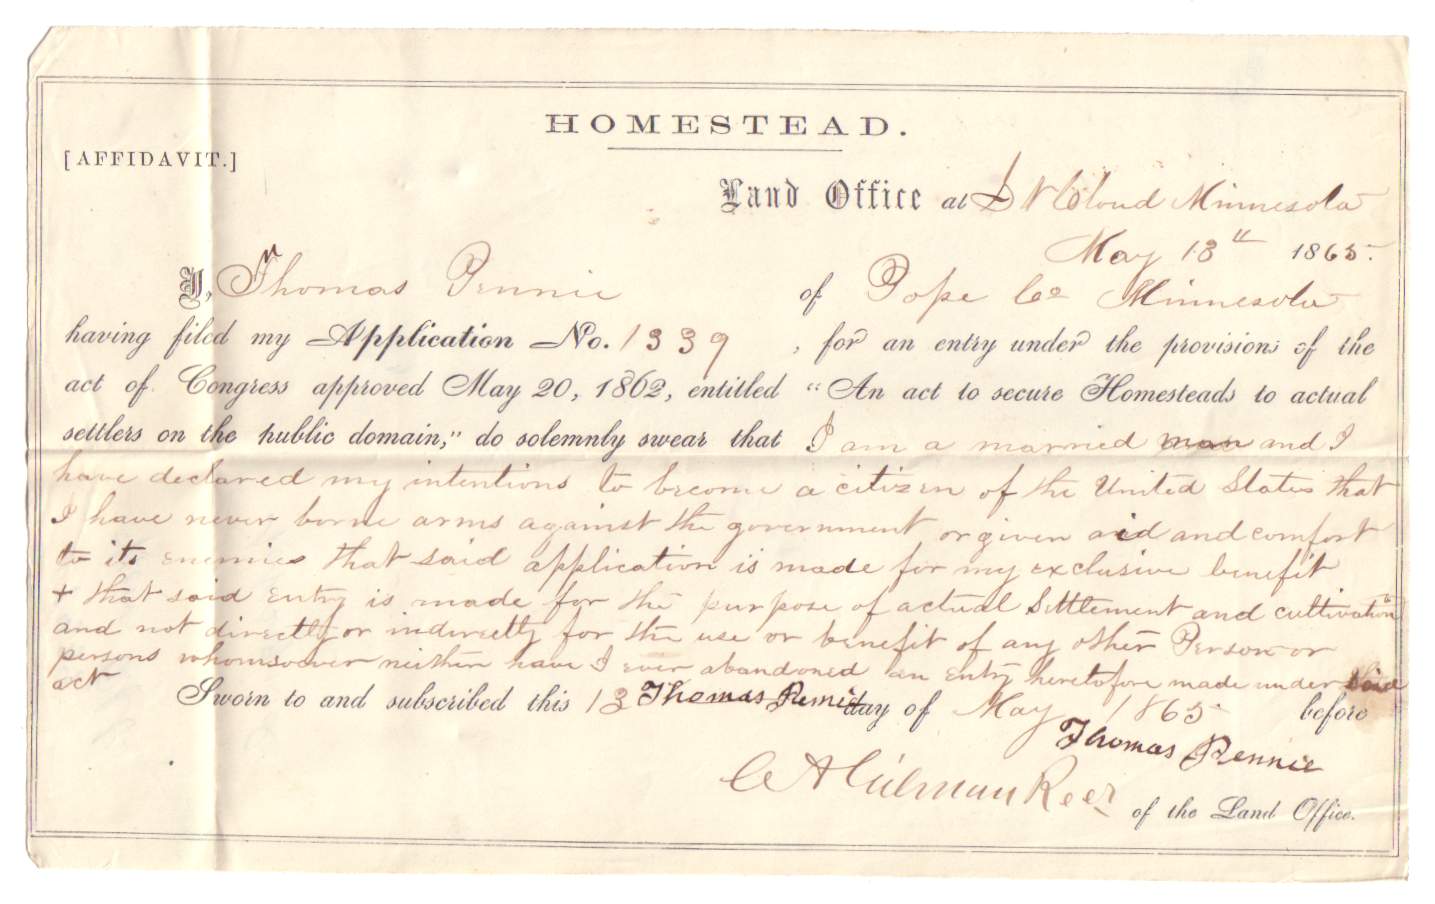 HOMESTEAD.
[AFFIDAVIT.]
Land Office at St Cloud Minnesota
May 13th 1865.
I, Thomas Rennie of Pope Co Minnesota
having filed my Application No. 1339, for an entry under the provisions of the
act of Congress approved May 20, 1862, entitled "An act to secure Homesteads to actual
settlers on the public domain," do solemnly swear that I am a married man and I
have declared my intentions to become a citizen of the United States that
I have never borne arms against the government or given aid and comfort
to its enemies that said application is made for my exclusive benefit
+ that said entry is made for the purpose of actual Settlement and cultivation
and not directly or indirectly for the use or benefit of any other Person or
persons whomsoever neither have I ever abandoned an Entry heretofore made under said
act
Sworn to and subscribed this 13 Thomas Rennie day of May 1865 before
Thomas Rennie
C A Gilman Recr of the Land Office.